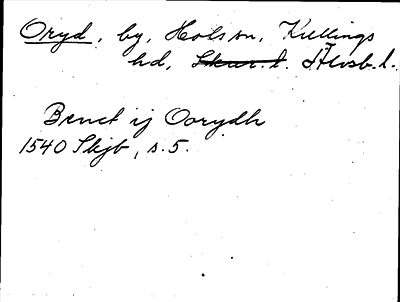 Oryd, by, Hols sn, Kullings
hd, Skar. l. Älvsb. l.
Benct ij Oorydh
1540 Skjb, s. 5.